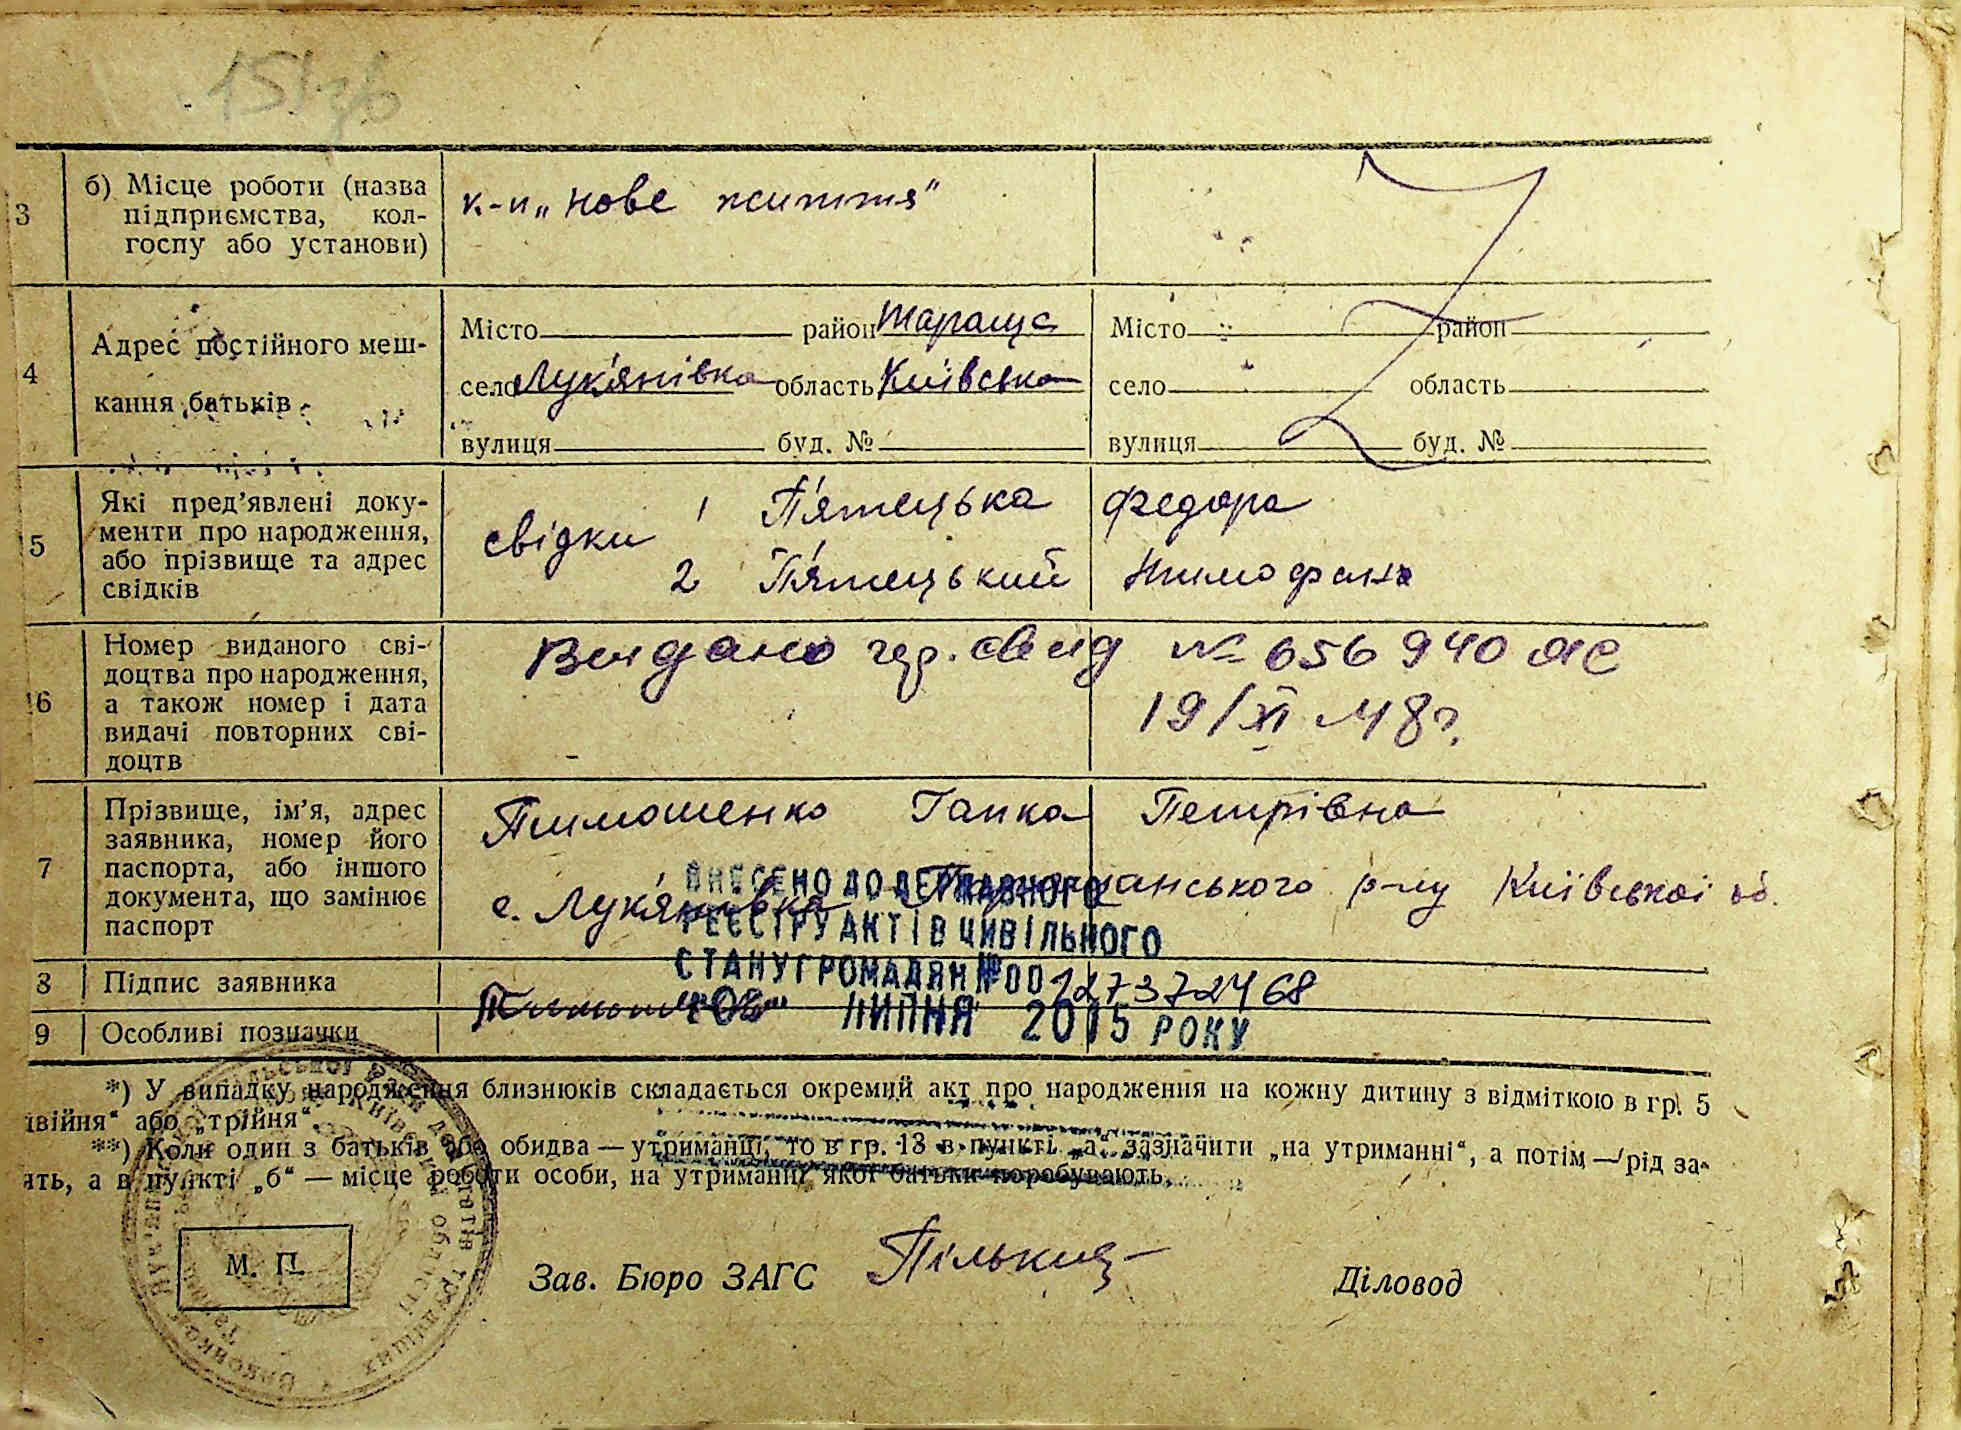 3
б) Місце роботи (назва
підприємства, кол-
госпу або установи)
к-п „Нове життя“
4
Адрес постійного меш-
кання батьків
Місто район Тараща
село Лук'янівка область Київська
вулиця буд. №
Місто район
село область
вулиця буд. №
5
Які пред’явлені доку-
менти про народження,
або прізвище та адрес
свідків
свідки 1 П'ятецька Федора
2 П'ятецький Тимофан
6
Номер виданого сві-
доцтва про народження,
а також номер і дата
видачі повторних сві-
доцтв
Видано гер. свид № 656940 ЯС
19/XI 48 г.
7
Прізвище, ім’я, адрес
заявника, номер його
паспорта, або іншого
документа, що замінює
паспорт
Тимошенко Гапка Петрівна
с. Лук'янівка Таращанського р-ну Київської об.
ВНЕСЕНО ДО ДЕРЖАВНОГО
РЕЄСТРУ АКТІВ ЦИВІЛЬНОГО
СТАНУ ГРОМАДЯН №00127372468
"08" ЛИПНЯ 2015 РОКУ
8
Підпис заявника
9
Особливі позначки
*) У випадку народження близнюків складається окремий акт про народження на кожну дитину з відміткою в гр. 5
двійня“ або „трійня“.
**) Коли один з батьків або обидва — утриманці, то в гр. 13 в пункті „а“ зазначити „на утриманні“, а потім — рід за-
ять, а в пункті „б“ — місце роботи особи, на утриманні якої батьки перебувають.
М. П.
Зав. Бюро ЗАГС
Діловод